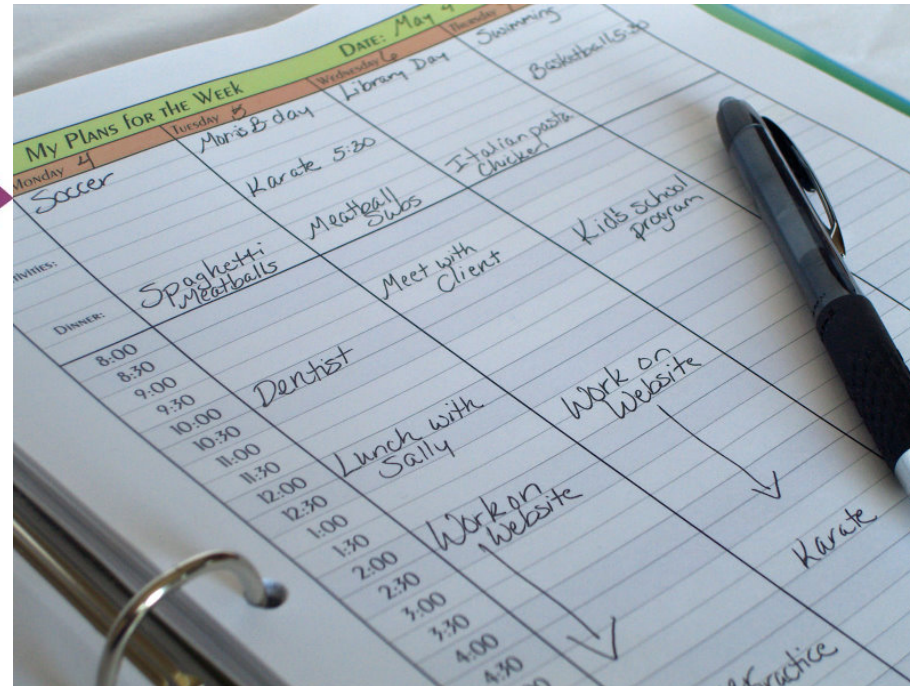 My Plans for the Week
Date: May 4
Monday 4
Tuesday 5
Wednesday 6
Soccer
Mom's B day
Library Day
Swimming
Karate 5:30
Basketball 5:30
Dinner:
Spaghetti
Meatballs
Meatball
Subs
Italian pasta
Chicken
8:00
8:30
9:00
9:30
10:00
10:30
11:00
11:30
12:00
12:30
1:00
1:30
2:00
2:30
3:00
3:30
4:00
4:30
Dentist
Lunch with
Sally
Work on
Website
Meet with
Client
Work on
Website
Kid's school
program
Karate
Practice